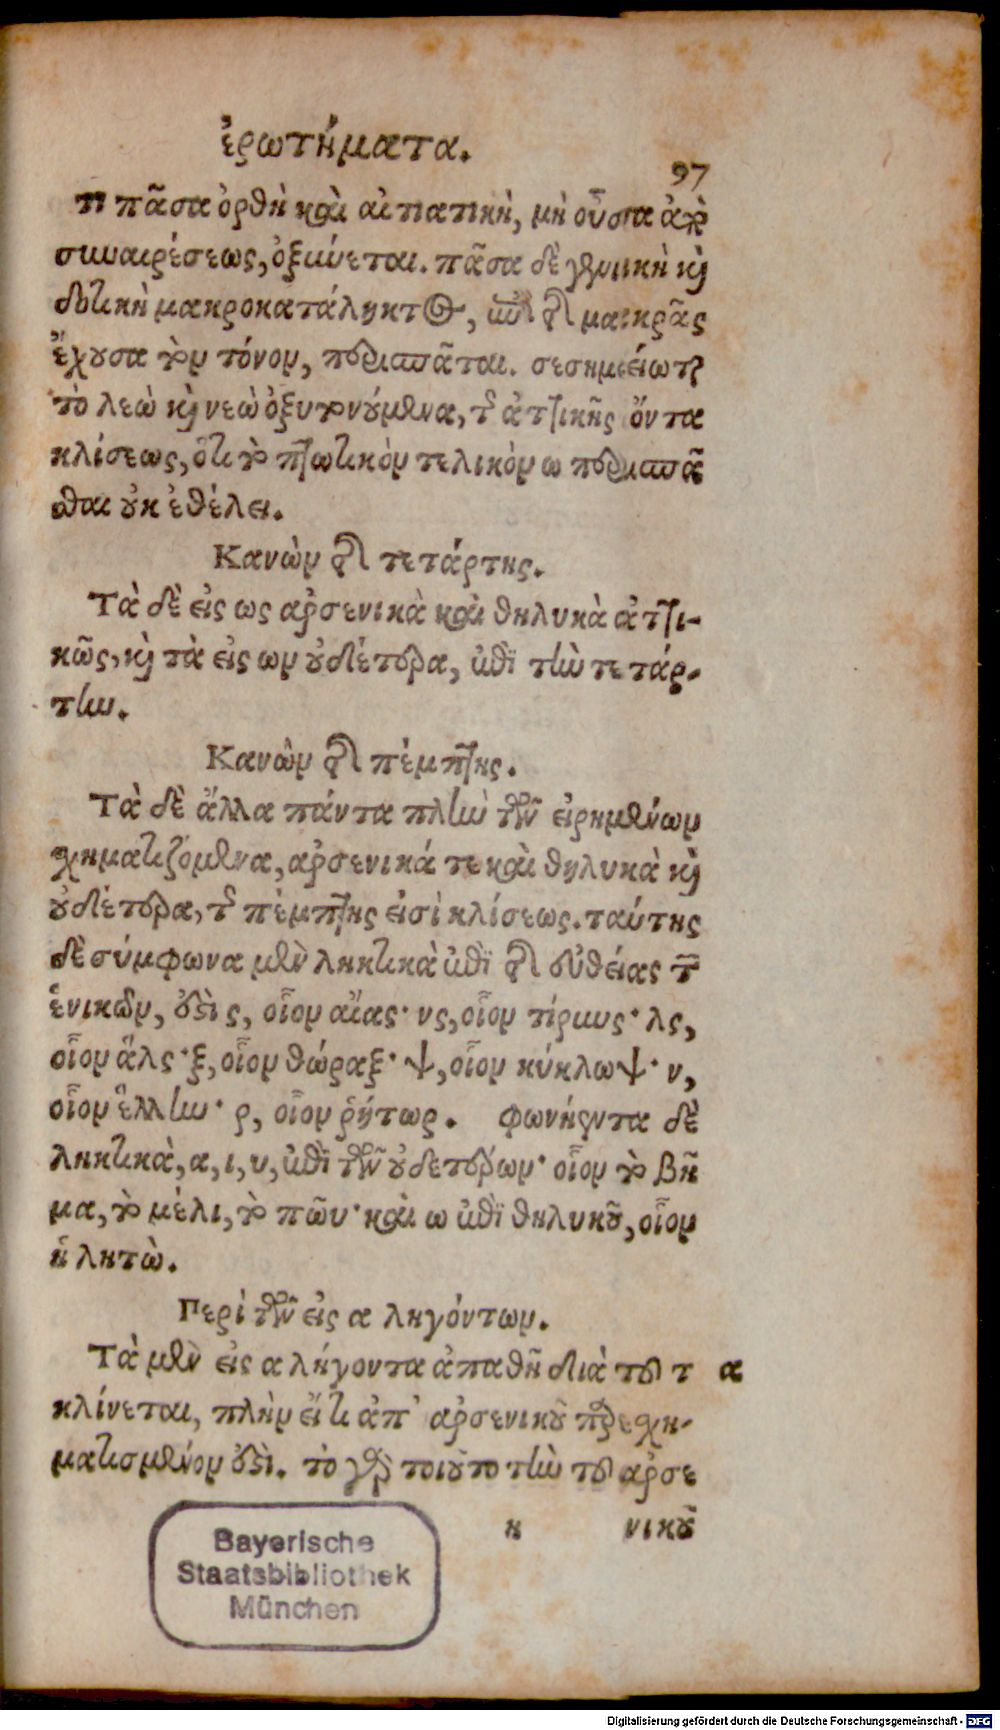 ἐρωτήματα.
97
τι πᾶσα ὀρθὴ καὶ αἰτιατικὴ, μὴ οὖσα ἀπὸ
συναιρέσεως, ὀξύνεται. πᾶσα δὲ γενικὴ καὶ
δοτικὴ μακροκατάληκτος, ἐπὶ τῆς μακρᾶς
ἔχουσα τὸν τόνον, περισπᾶται. σεσημείωται
τὸ λεὼ καὶ νεὼ ὀξυτονούμενα, τῆς ἀττικῆς ὄντα
κλίσεως, ὅτι τὸ πτωτικὸν τελικὸν ω περισπᾶ
σθαι οὐκ ἐθέλει.
Κανὼν τῆς τετάρτης.
Τὰ δὲ εἰς ως ἀρσενικὰ καὶ θηλυκὰ ἀττι-
κῶς, καὶ τὰ εἰς ων οὐδέτερα, ἐπὶ τὴν τετάρ-
την.
Κανὼν τῆς πέμπτης.
Τὰ δὲ ἄλλα πάντα πλὴν τῶν εἰρημένων
σχηματιζόμενα, ἀρσενικά τε καὶ θηλυκὰ καὶ
οὐδέτερα, τῆς πέμπτης εἰσὶ κλίσεως. ταύτης
δὲ σύμφωνα μὲν ληκτικὰ ἐπὶ τῆς εὐθείας τῶν
ἑνικῶν, ἐστὶ ς, οἷον αἴας· νς, οἷον τίρυνς· λς,
οἷον ἅλς· ξ, οἷον θώραξ· ψ, οἷον κύκλωψ· ν,
οἷον ἕλλην· ρ, οἷον ῥήτωρ. φωνήεντα δὲ
ληκτικὰ, α, ι, υ, ἐπὶ τῶν οὐδετέρων· οἷον τὸ βῆ
μα, τὸ μέλι, τὸ πῶυ· καὶ ω ἐπὶ θηλυκοῦ, οἷον
ἡ λητὼ.
Περὶ τῶν εἰς α ληγόντων.
Τὰ μὲν εἰς α λήγοντα ἀπαθῆ διὰ τοῦ τ α
κλίνεται, πλὴν εἴ τι ἀπ' ἀρσενικοῦ παρεσχη-
ματισμένον ἐστὶ. τὸ γὰρ τοιοῦτο τὴν τοῦ ἀρσε
ν νικοῦ
Bayerische
Staatsbibliothek
München
Digitalisierung gefördert durch die Deutsche Forschungsgemeinschaft - DFG